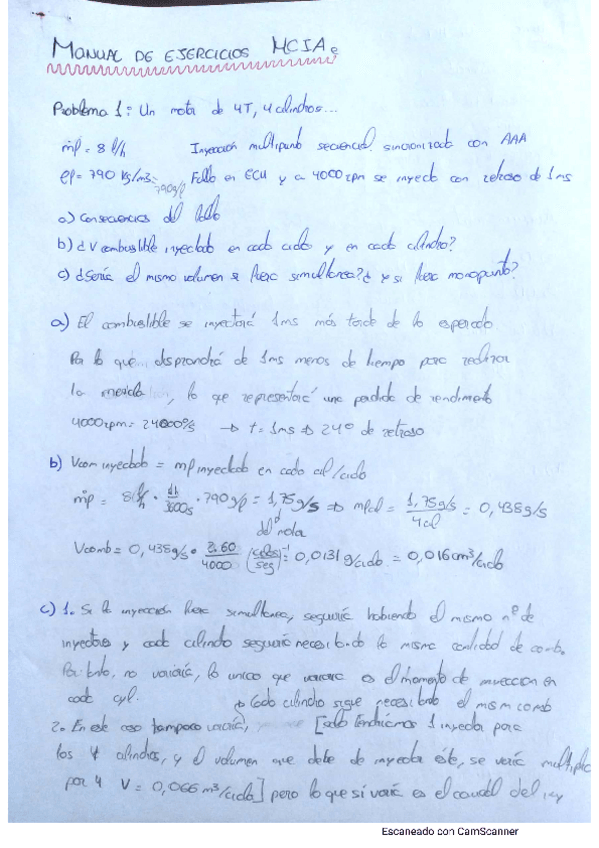 MANUAL DE EJERCICIOS MCIA.
Problema 1: Un motor de 4T, 4 cilindros...
ṁp = 8 l/h Inyección multipunto secuencial. sincronizada con AAA
ρp = 790 kg/m3 = 790g/l Fallo en ECU y a 4000rpm se inyecta con retraso de 1ms
a) Consecuencias del fallo
b) ¿V combustible inyectado en cada ciclo y en cada cilindro?
c) ¿Sería el mismo volumen si fuera simultanea? ¿y si fuera monopunto?
a) El combustible se inyectará 1ms más tarde de lo esperado
Por lo que dispondrá de 1ms menos de tiempo para realizar
la mezcla, lo que representará una perdida de rendimiento
4000rpm = 24000º/s → t = 1ms ⇒ 24º de retraso
b) Vcom inyectado = mp inyectado en cada cil/ciclo
ṁp = 8 l/h · 1h/3600s · 790g/l = 1,75g/s ⇒ mpcil = 1,75g/s / 4cil = 0,438g/s
del motor
Vcomb = 0,438g/s · 2·60/4000 (ciclos/seg)⁻¹ = 0,0131g/ciclo = 0,016cm³/ciclo
c) 1. Si la inyección fuera simultanea, seguiría habiendo el mismo nº de
inyectores y cada cilindro seguiría necesitando la misma cantidad de comb.
Por tanto, no variaría, lo unico que variara es el momento de inyeccion en
cada cyl. → Cada cilindro sigue necesitando el mism comb
2. En este caso tampoco variaría, [solo tendríamos 1 inyector para
los 4 cilindros, y el volumen que debe de inyectar éste, se vería multiplic
por 4 V = 0,066 m³/ciclo] pero lo que sí varía es el caudal del iny
Escaneado con CamScanner